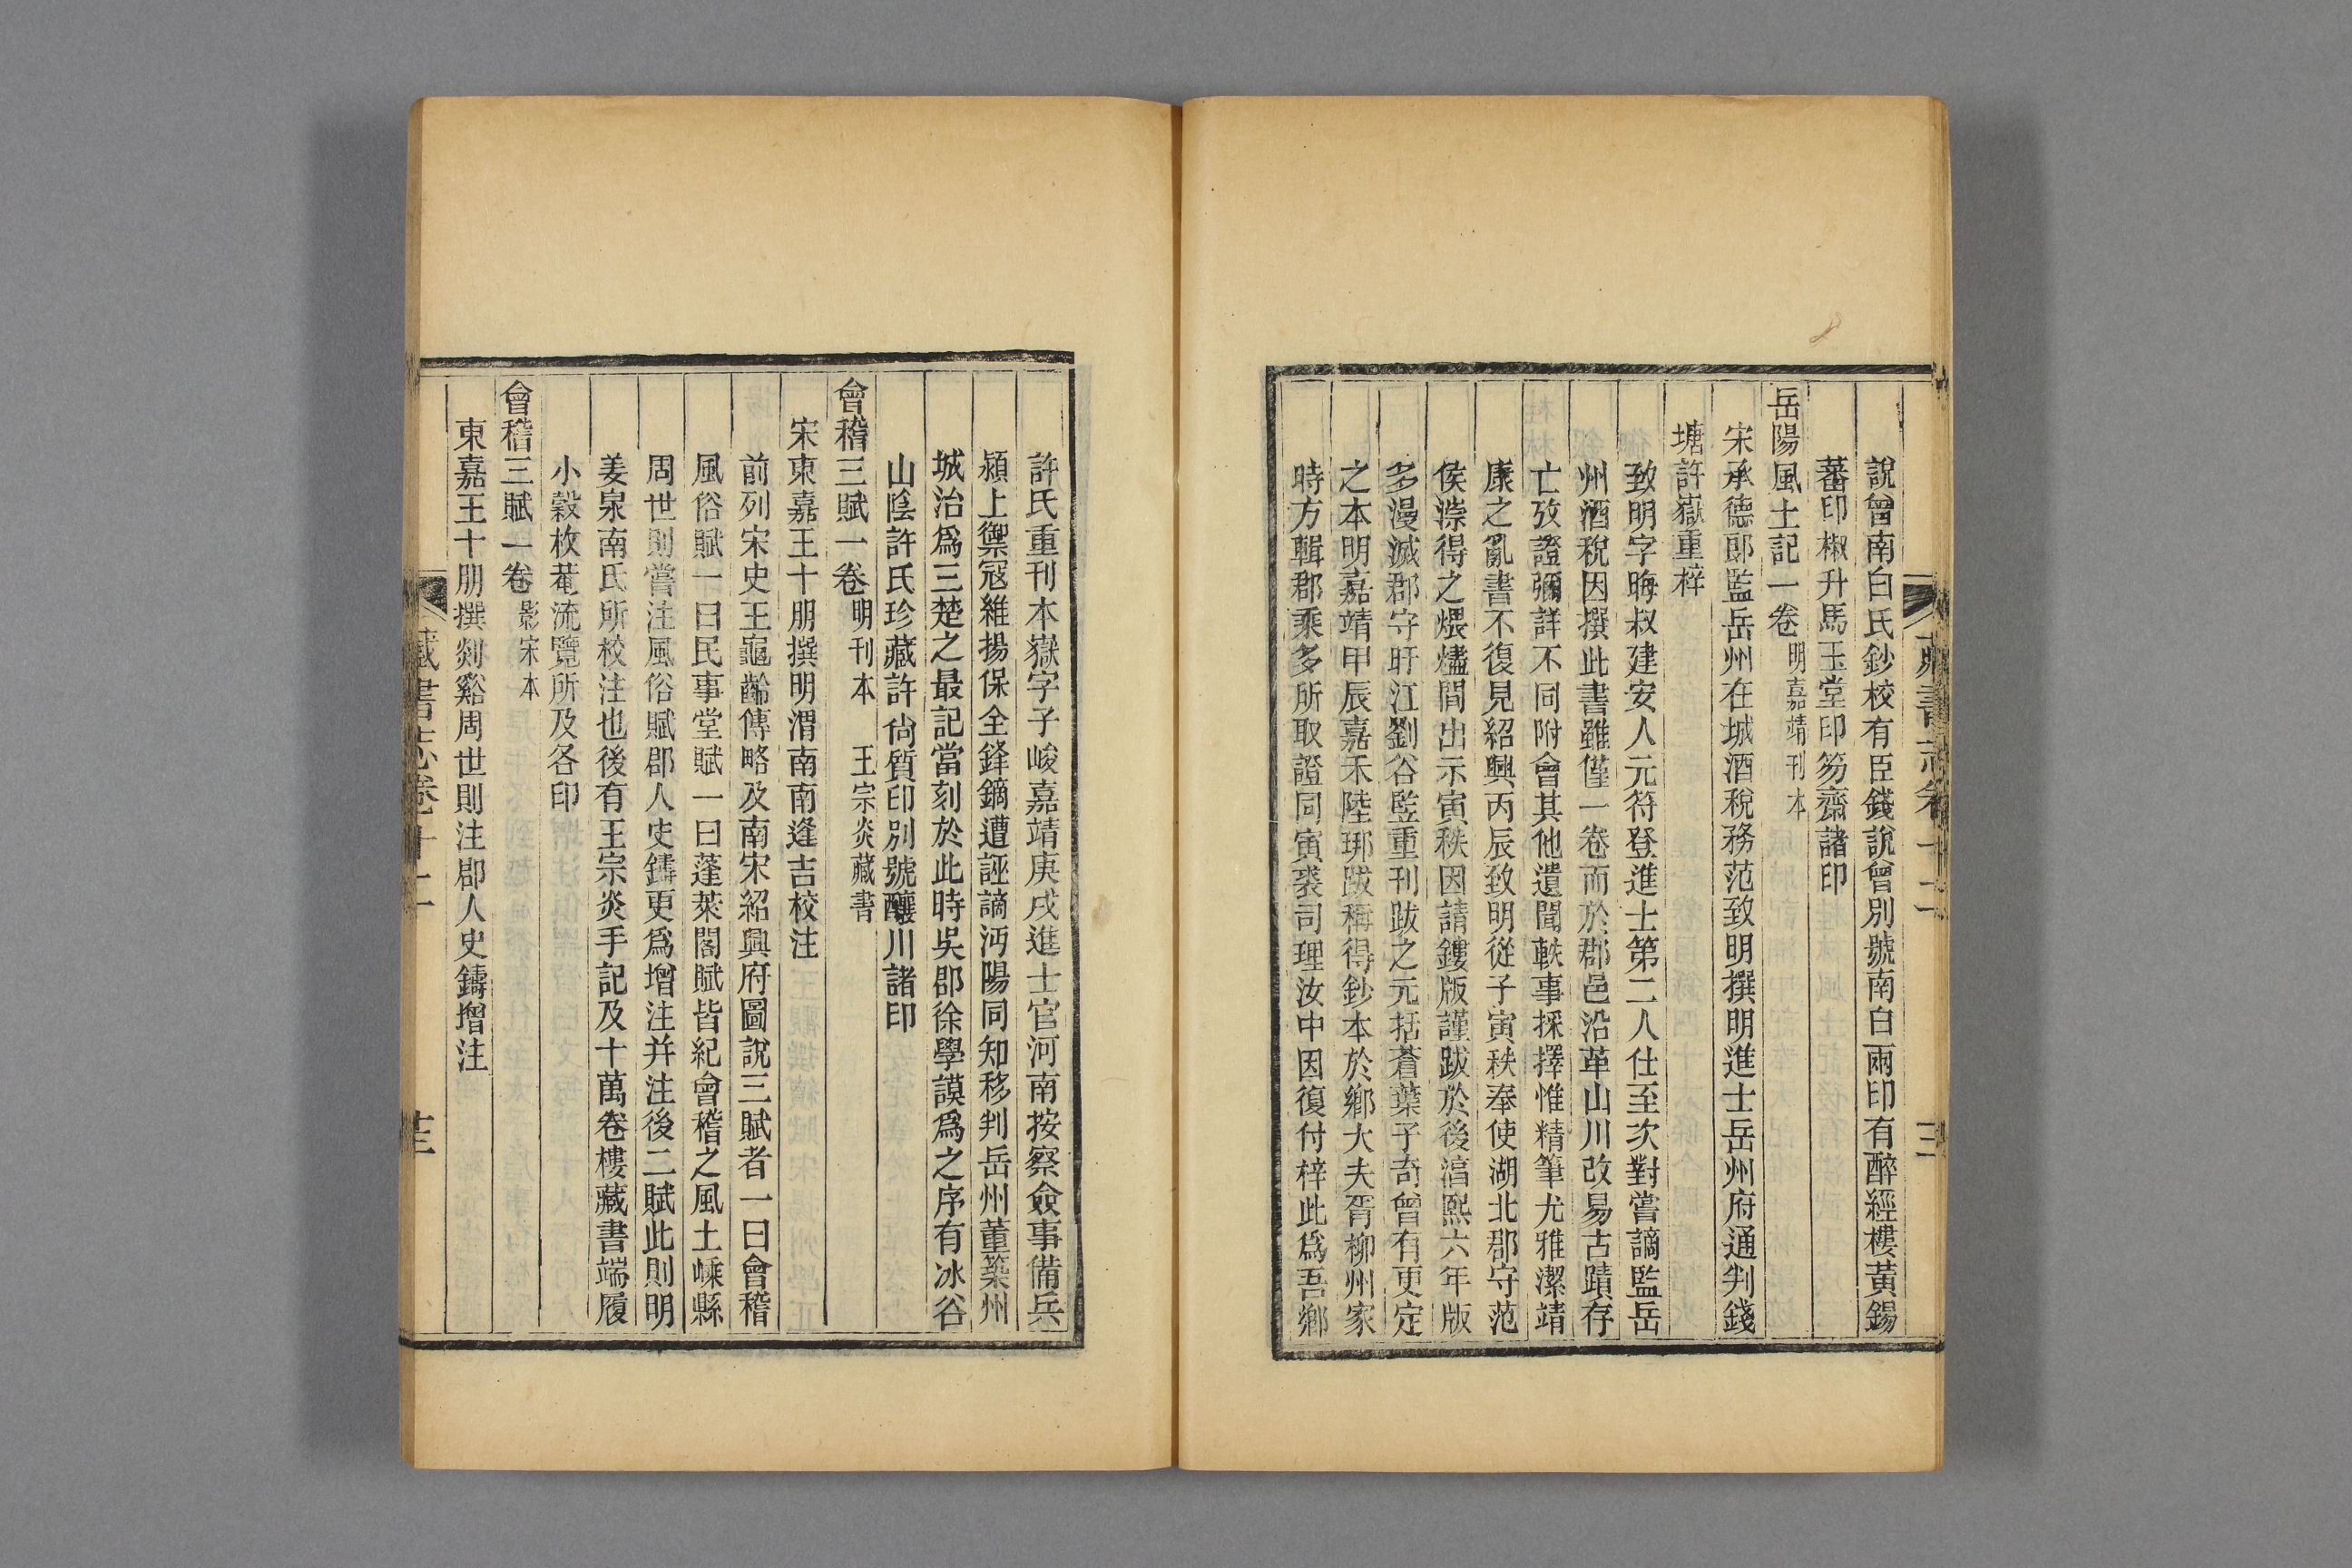 說曾南白氏鈔校有臣錢說曾別號南白兩印有醉經樓黃錫
蕃印椒升馬玉堂印笏齋諸印
岳陽風土記一卷 明嘉靖刊本
宋承德郎監岳州在城酒稅務范致明撰明進士岳州府通判錢
塘許嶽重梓
致明字晦叔建安人元符登進士第二人仕至次對嘗謫監岳
州酒稅因撰此書雖僅一卷而於郡邑沿革山川改易古蹟存
亡攷證彌詳不同附會其他遺聞軼事採擇惟精筆尤雅潔靖
康之亂書不復見紹興丙辰致明從子寅秩奉使湖北郡守范
侯澿得之煨燼間出示寅秩因請鏤版謹跋於後淳熙六年版
多漫滅郡守盱江劉谷監重刊跋之元括蒼葉子奇曾有更定
之本明嘉靖甲辰嘉禾陸琊跋稱得鈔本於鄉大夫胥柳州家
時方輯郡乘多所取證同寅裘司理汝中因復付梓此爲吾鄉
許氏重刊本嶽字子峻嘉靖庚戌進士官河南按察僉事備兵
潁上禦冦維揚保全鋒鏑遭誣謫沔陽同知移判岳州董築州
城治爲三楚之最記當刻於此時吳郡徐學謨爲之序有冰谷
山陰許氏珍藏許尙質印別號釀川諸印
會稽三賦一卷 明刊本 王宗炎藏書
宋東嘉王十朋撰明渭南南逢吉校注
前列宋史王龜齡傳略及南宋紹興府圖說三賦者一曰會稽
風俗賦一曰民事堂賦一曰蓬萊閣賦皆紀會稽之風土嵊縣
周世則嘗注風俗賦郡人史鑄更爲增注并注後二賦此則明
姜泉南氏所校注也後有王宗炎手記及十萬卷樓藏書端履
小穀枚菴流覽所及各印
會稽三賦一卷 影宋本
東嘉王十朋撰剡谿周世則注郡人史鑄增注
藏書志卷十二